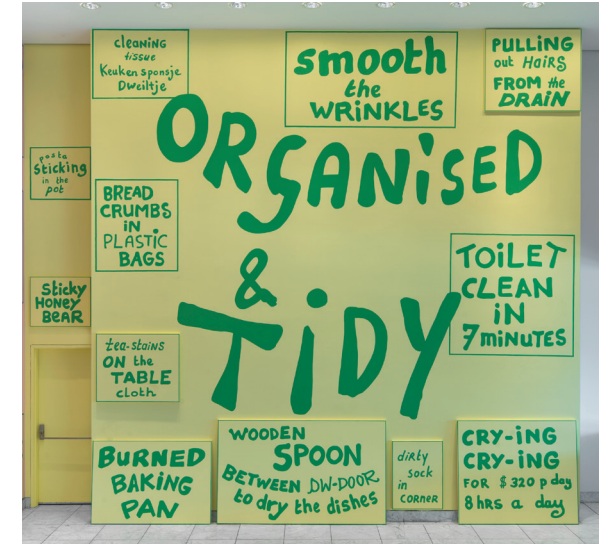 cleaning
tissue
Keuken sponsje
Dweiltje
smooth
the
WRINKLES
PULLING
out HaiRS
FROM the
DRAIN
ORGANiSED
&
TiDY
pasta
Sticking
in the
pot
BREAD
CRUMBS
iN
PLASTIC
BAGS
Sticky
HONEY
BEAR
TOiLET
CLEAN
iN
7 minUTES
tea-stains
ON the
TABLE
cloth
BURNED
BAKING
PAN
WOODEN
SPOON
BETWEEN DW-DOOR
to dry the dishes
dirty
sock
in
CORNER
CRY-iNG
CRY-iNG
FOR $320 p day
8 hRS a day